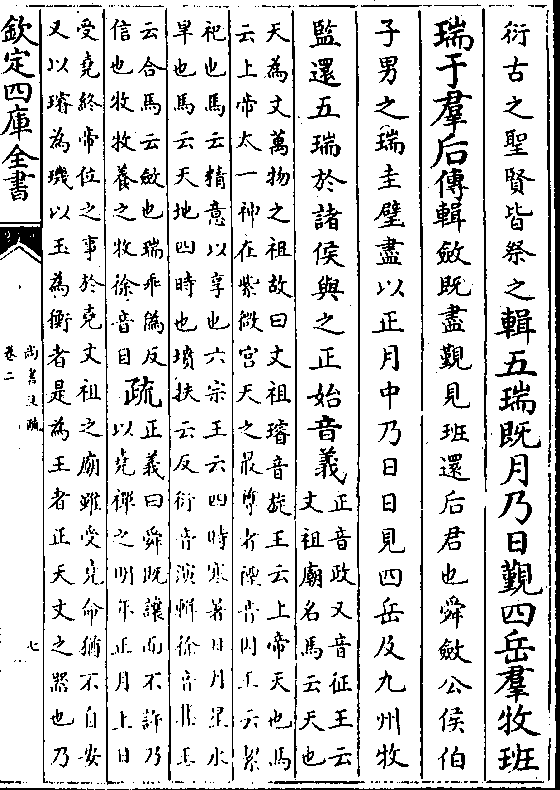 衍古之聖賢皆祭之輯五瑞既月乃日覲四岳羣牧班
瑞于羣后傳輯斂既盡覲見班還后君也舜斂公侯伯
子男之瑞圭璧盡以正月中乃日日見四岳及九州牧
監還五瑞於諸侯與之正始音義正音政又音征王云
文祖廟名馬云天也
天為文萬物之祖故曰文祖璿音旋王云上帝天也馬
云上帝太一神在紫微宮天之最尊者禋音因王云絜
祀也馬云精意以享也六宗王云四時寒暑日月星水
旱也馬云天地四時也墳扶云反衍音演輯徐音集王
云合馬云斂也瑞垂偽反
信也牧牧養之牧徐音目疏正義曰舜既讓而不許乃
以堯禪之明年正月上日
受堯終帝位之事於堯文祖之廟雖受堯命猶不自安
又以璿為璣以玉為衡者是為王者正天文之器也乃
欽定四庫全書
尚書注疏
卷二
七